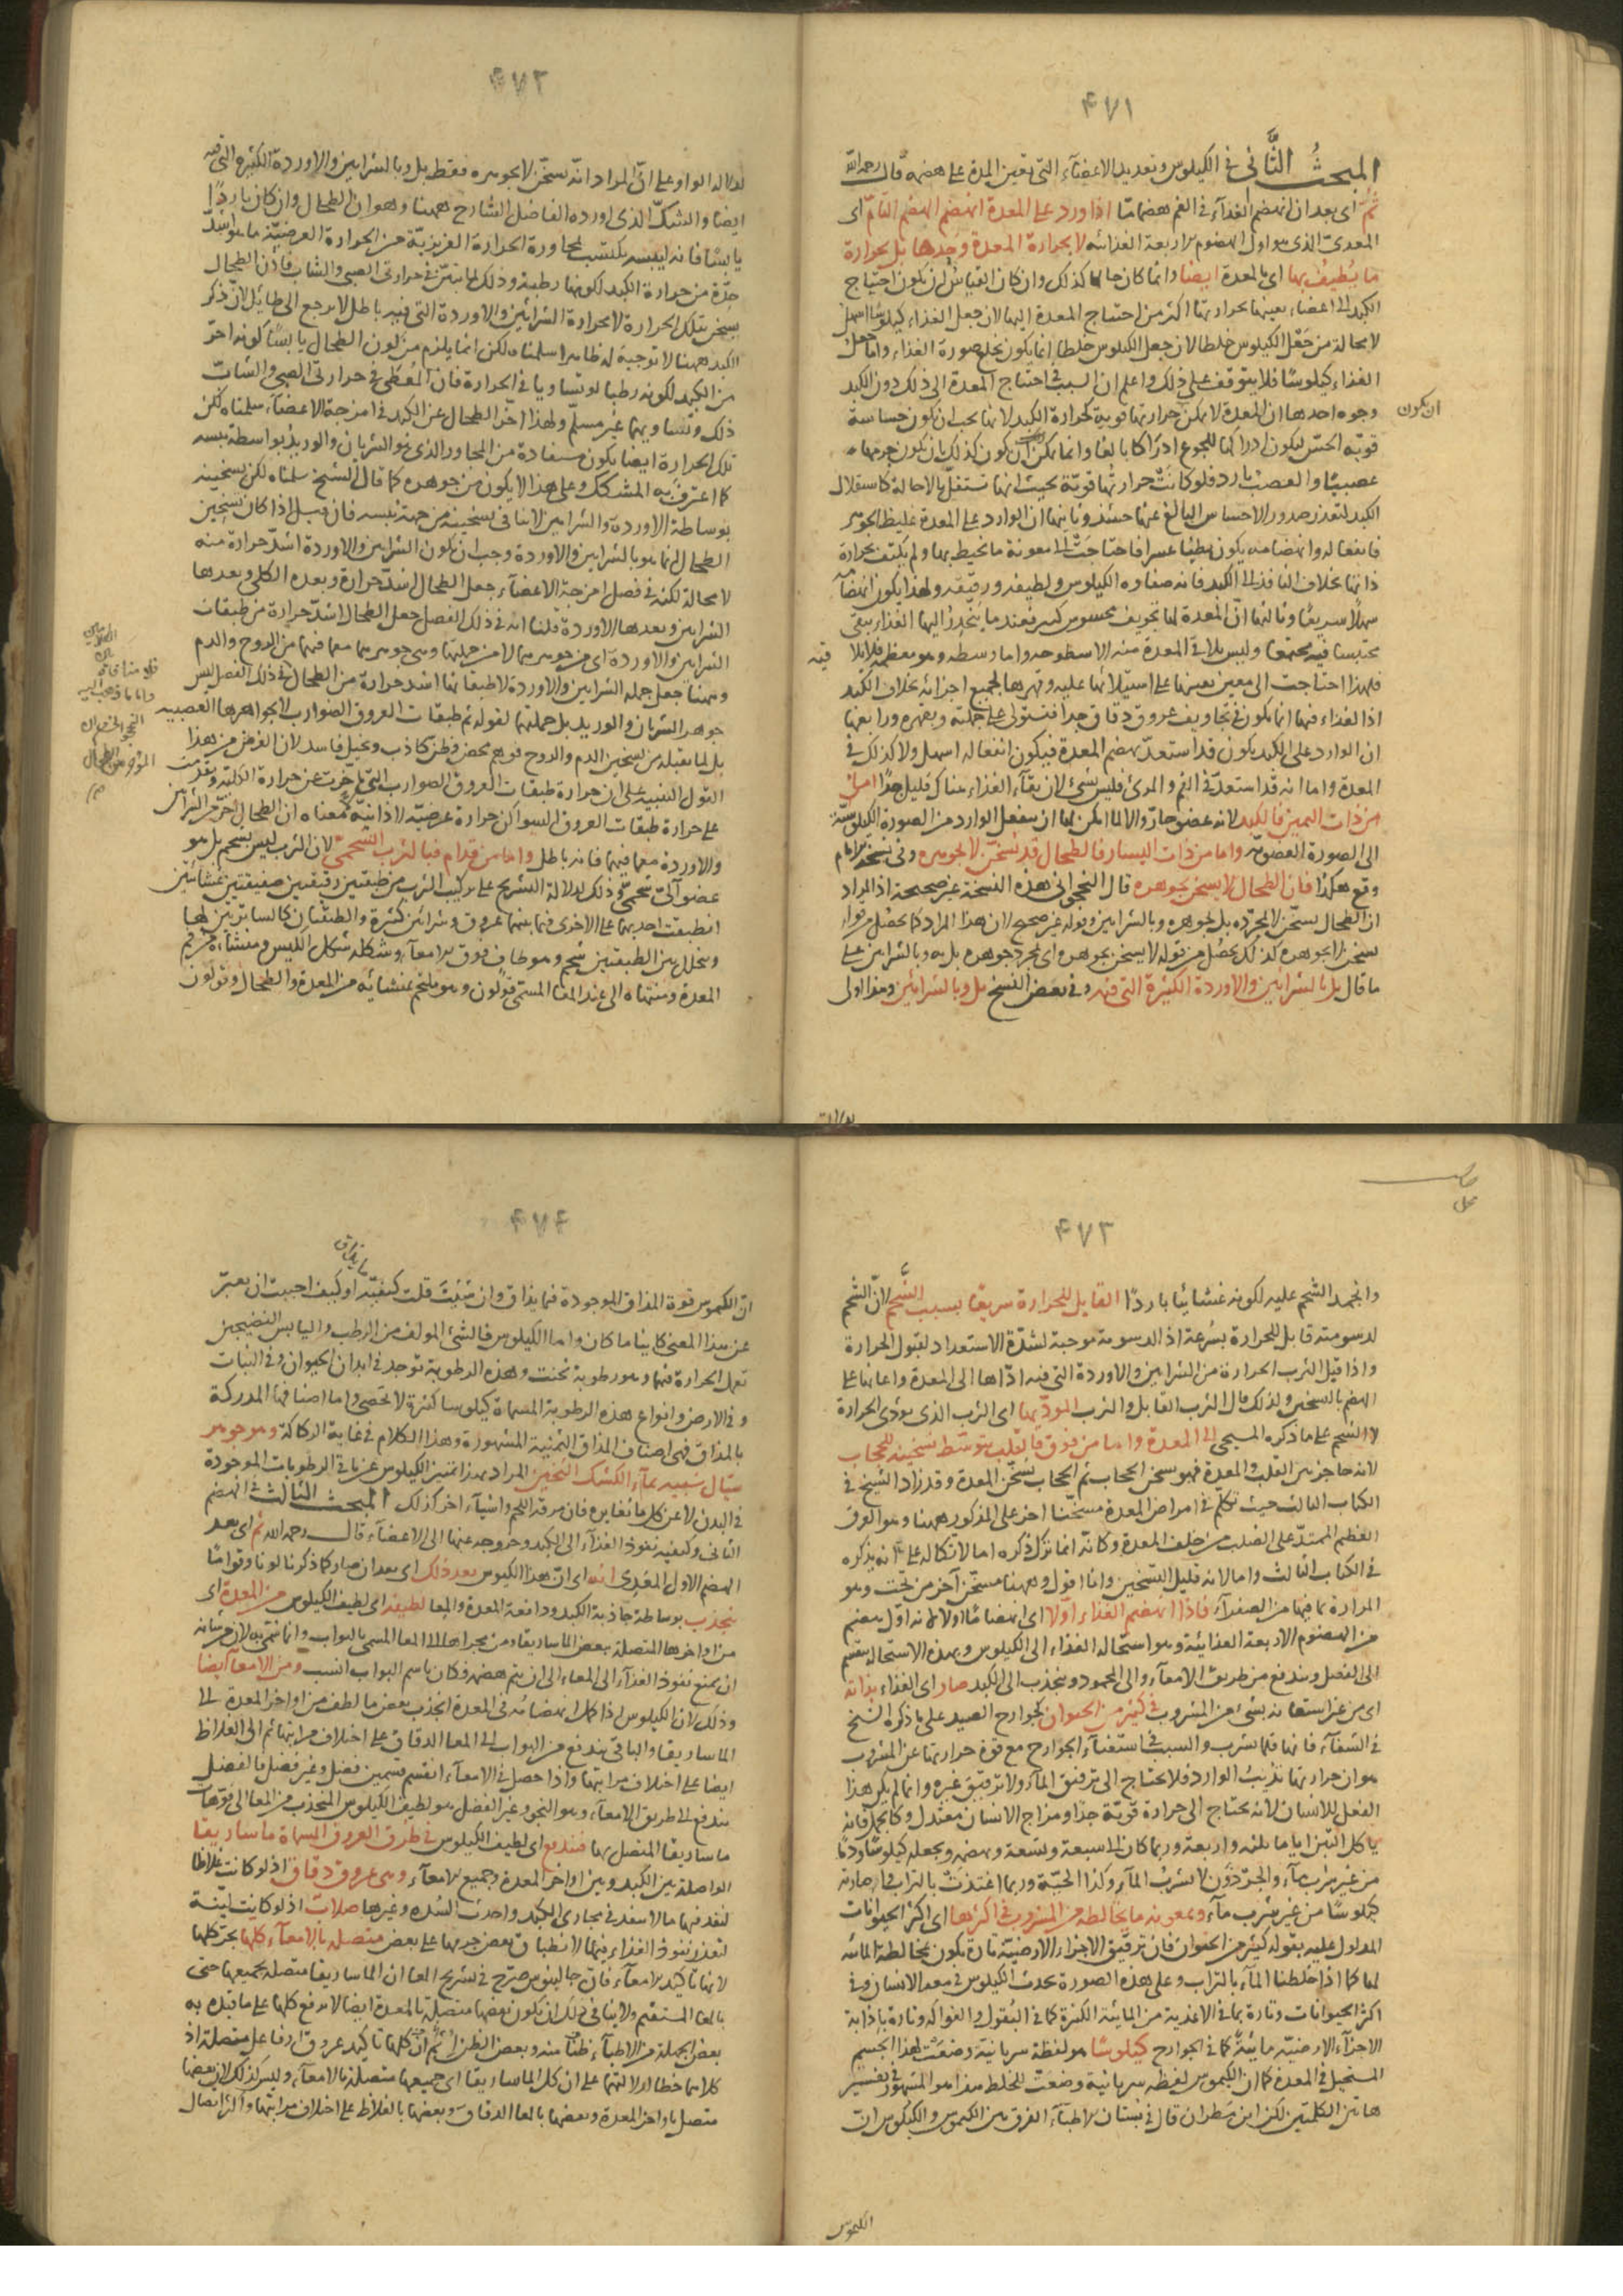 ٤٧١
المبحثُ الثَّانى فى الكيلوس وتعديد الاعضآء التى تعين المعدة على هضمه قال رحمه الله
ثم اى بعد ان انهضم الغذآء فى الفم هضما مّا اذا ورد على المعدة انهضم الهضم التآمّ اى
المعدىّ الذى هو اول الهضوم الاربعة الغذائيه لا بحرارة المعدة وحدها بل بحرارة
ما يُطيف بها اى بالمعدة ايضا وانما كان حالها كذلك وان كان القياسُ ان يكون احتياج
الكبد الى اعضاء يعينها بحرارتها اكثر من احتياج المعدة اليها لان جعل الغذاء كيلوسًا اسهل
لا محالة من جَعْل الكيلوس خلطا لان جعل الكيلوس خلطا انما يكون بخلع صورة الغذاء واما جعل
الغذاء كيلوسًا فلا يتوقف على ذلك واعلم ان السبب فى احتياج المعدة الى ذلك دون الكبد
وجوه احدها ان المعدة لا يمكن حرارتها قوية كحرارة الكبد لانها يجب ان يكون حساسة
ان يكون
قويّه الحسّ ليكون ادراكها للجوع ادراكا بالغا وانما يمكن ان يكون كذلك ان يكون جرمها
عصبيًا والعصب بارد فلو كانت حرارتُها قويّة بحيث انها تستقلّ بالاحالة كاستقلال
الكبد لتعذر صدور الاحساس البالغ عنها حينئذ وثانيها ان الوارد على المعدة غليظ الجوهر
فانفعاله وانهضامه يكون بطيئا عسرا فاحتاجت الى معونة ما يحيط بها ولم يكتف بحرارة
ذاتها بخلاف النافذ الى الكبد فانه صفاوه الكيلوس ولطيفه ورقيقه ولهذا يكون انهضامه
سهلا سريعًا وثالثها انّ المعدة لها تجويف محسوس كبير فعند ما يَنحدرُ اليها الغذاء يبقى
محتبسا فيه مجتمعًا وليس يلاقى المعدة منه الا سطوحه واما وسطه وهو معظمه فلا يلا
فيه
فلهذا احتاجت الى معين يعينها على استيلائها عليه وقهرها لجميع اجزائه بخلاف الكبد
اذا الغذاء فيها انما يكون فى تجاويف عروق دقاق جدا فتستولى على جملته وبقهره ورابعها
ان الوارد على الكبد يكون قد استعدّ بهضم المعدة فيكون انفعاله اسهل ولا كذلك فى
المعدة واما انه قد استعدّ فى الفم والمرئ فليس بشئ لان بقآء الغذاء هناك قليل جدًا امّا
من ذات اليمين فالكبد لانه عضو حارّ والا لما امكن لها ان ينفعل الوارد من الصورة الكيلوسيّة
الى الصورة العضويّه واما من ذات اليسار فالطحال قد يسخّن لا بجوهره وفى نسخة
وقع هكذا فان الطحال لا يسخن بجوهره قال النخجوانى هذه النسخة غير صحيحة اذ المراد
ان الطحال يسخّن لا بمجرّده بل بجوهره وبالشرايين وقوله غير صحيح لان هذا المراد كما يحصُل من قوله
يسخن لا بجوهره كذلك يحصُل من قوله لا يسخن بجوهره اى بمجرد جوهره بل به وبالشرايين على
ما قال بل بالشرايين والاوردة الكثيرة التى فيه وفى بعض النسخ بل وبالشرايين وهذا اولى

٤٧٢
لدلالة الواو على انّ المراد انه يسخّن لا بجوهره فقط بل وبالشرايين والاوردة الكثيره التى فيه
ايضا والشكّ الذى اورده الفاضل الشارح ههنا وهو ان الطحال وان كان باردًا
يابسًا فانه ليبسه يكتسب بمجاورة الحرارة الغريزيّة من الحرارة العرضيّة ما هو اشدّ
حِدّة من حرارة الكبد لكونها رطبة وذلك لما تبيّن فى حرارتى الصبى والشاب فاذن الطحال
يسخن بتلك الحرارة لا بحرارة الشرائين والاوردة التى فيه باطل لا يرجع الى طائل لانّ ذكر
الكبد ههنا لا توجيهَ له ظاهرا سلمناه لكن انما يلزم من كون الطحال يابسًا كونه احرّ
من الكبد لكونه رطبا لو تساويا فى الحرارة فان المُعطى فى حرارتى الصبى والشابّ
ذلك وتساويهما غير مسلّم ولهذا اخّر الطحال عن الكبد فى امزجة الاعضآء سلمناه لكن
تلك الحرارة ايضا يكون مستفادة من المجاور الذى هو الشريان والوريد بواسطة يبسه
كما اعترف به المشكك وعلى هذا لا يكون من جوهره كما قال الشيخ سلمناه لكن تسخينه
بوساطة الاوردة والشرايين لا ينافى تسخينه من جهة يبسه فان قيل اذا كان تسخين
الطحال انما هو بالشرايين والاوردة وجب ان يكون الشرايين والاوردة اشدّ حرارة منه
لا محالة لكنه فى فصل امزجة الاعضآء جعل الطحال اشدّ حرارة وبعده الكلى وبعدها
الشرايين وبعدها الاوردة قلنا انه فى ذلك الفصل جعل الطحال اشدّ حرارة من طبقات
الشرايين والاوردة اى من جوهرهما لا من جملتهما وهى جوهرهما معما فيهما من الروح والدم
وههنا جعل جملة الشرايين والاوردة لا طبقاتها اشد حرارة من الطحال فى ذلك الفصل ليس
جوهر الشريان والوريد بل جملتها لقوله ثم طبقات العروق الضوارب لا بجواهرها العصبيه
بل لما يقبله من تسخين الدم والروح فوهم محض وظن كاذب وتخيل فاسد لان الغرض من هذا
القول التنبيه على ان حرارة طبقات العروق الضوارب التى تاخّرت عن حرارة الكلية وتقدمت
على حرارة طبقات العروق السواكن حرارة عرضيّة لا ذاتيّة فمعناه ان الطحال احرّ من الشرائين
والاوردة معما فيهما فانه باطل واما من قدام فبالثرب الشحمى لان الثرب ليس بشحم بل هو
عضو آلىّ شحمىّ ذلك لدلالة التشريح على تركيب الثرب من طبقتين رقيقتين صفيقتين غشائيتين
انطبقت احديهما على الاخرى فيما بينهما عروق وشرائين كثيرة والطبقتان كالساترتين لهما
وتخلل بين الطبقتين شحم وهو طافٍ فوق الامعآء وشكله شكل الكيس ومنشأه من فم
المعدة ومنتهاه الى عند المعا المسمى قولون وهو ملتحم بمنشائه من المعدة والطحال وقولون

٤٧٣
وانجمد الشحم عليه لكونه غشائيا باردًا القابل للحرارة سريعًا بسبب الشَّحم لانّ الشحم
لدسومته قابل للحرارة بسُرعة اذ الدسومة موجبة لشدّة الاستعداد لقبول الحرارة
واذا قبل الثرب الحرارة من الشرايين والاوردة التى فيه ادّاها الى المعدة واعانها على
الهضم بالتسخين ولذلك قال الثرب القابل والثرب المودّيها اى الثرب الذى يؤدى الحرارة
لا الشحم على ما ذكره المسيحى الى المعدة واما من فوق فالقلب بتوسّط تسخينه للحجاب
لانه حاجز بين القلب والمعدة فهو يسخن الحجاب ثم الحجاب يسخّن المعدة وقد زاد الشيخ فى
الكتاب الثالث حيث تكلّم فى امراض المعدة مسخّنا اخر على المذكور ههنا وهو العرق
العظيم الممتدّ على الصلب من خلف المعدة وكانه انما ترك ذكره اما لاتكاله على انه يذكره
فى الكتاب الثالث واما لانه قليل التسخين وانا اقول وههنا مسخّن آخر من تحت وهو
المرارة بما فيها من الصفرآء فاذا انهضم الغذاء اولا اى انهضامًا اولا لانه اوّل هضم
من الهضوم الاربعة الغذائية وهو استحاله الغذاء الى الكيلوس وبهذه الاستحاله ينقسم
الى الفضل ويندفع من طريق الامعآء والى المحمود وينجذب الى الكبد صار اى الغذاء بذاته
اى من غير استعانه بشئ من المشروب فى كثير من الحيوان كجوارح الصيد على ما ذكره الشيخ
فى الشفآء فانها قلما تشرب والسبب فى استغنآء الجوارح مع قوة حرارتها عن المشروب
هو ان حرارتها تذيبُ الوارد فلا يحتاج الى ترقيق المآء ولا ترقيق غيره وانما لم يكن هذا
الفعل للانسان لانه يحتاج الى حرارة قويّة جدّا ومزاج الانسان معتدل وكالجمل فانه
ياكل التبن اياما ثلثه واربعة وربما كان الى سبعة وتسعة ويهضمه ويجعله كيلوسًا ودمًا
من غير شراب مآء والجرذون لا يشرب المآء وكذا الحيّة وربما اغتذت بالتراب فاحالته
كيلوسًا من غير شرب مآء وبمعونه ما يخالطه من المشروب فى اكثرها اى اكثر الحيوانات
المدلول عليه بقوله كثير من الحيوان فان ترقيق الاجزاء الارضيّة تارة يكون بمخالطة المائيه
لها كما اذا خلطنا المآء بالتراب وعلى هذه الصورة يحدث الكيلوس فى معد الانسان وفى
اكثر الحيوانات وتارة بما فى الاغذية من المائية الكثيرة كما فى البُقول والفواكه وتارة باذابة
الاجزآء الارضيّه مائيةً كما فى الجوارح كيلوسًا هو لفظة سريانية وضعت لهذا الجسم
المستحيل فى المعدة كما ان الكيموس لفظه سريانية وضعت للخلط هذا هو المشهور فى تفسير
هاتين الكلمتين لكن ابن مَطران قال فى بُستان الاطبآء الفرق بين الكيموس والكيلوس انّ
الكيموس

٤٧٤
انّ الكيموس قوة المذاق الموجودة فيما يذاق وان شئتَ قلت كيفيّه او كيف احببت ان يعبّر
ما يذاق
عن هذا المعنى كاينا ما كان واما الكيلوس فالشئ المولف من الرطب واليابس النضيجين
تعمل الحرارة فيهما وهو رطوبة ثخنت وهذه الرطوبة توجد فى ابدان الحيوان وفى النبات
وفى الارض وانواع هذه الرطوبة المسماة كيلوسا كثيرة لا تحصى واما اصنافها المدركة
بالمذاق فهى اصناف المذاق الثمنية المشهورة وهذا الكلام فى غاية الركاكة وهو جوهر
سيّال شبيه بمآء الكشك الثخين المراد بهذا تميز الكيلوس عن باقى الرطوبات الموجودة
فى البدن لا عن كل ما يُغايره فان مرقة اللحم واشيآء اخر كذلك المبحث الثالث فى الهضم
الثانى وكيفيه نفوذ الغذآء الى الكبد وخروجه عنها الى الاعضآء قال رحمه الله ثم اى بعد
الهضم الاول المعدِى انه اى انّ هذا الكيلوس بعد ذلك اى بعد ان صار كما ذكرنا لونا وقوامًا
ينجذب بوساطة جاذبة الكبد ودافعة المعدة والمعا لطيفه اى لطيف الكيلوس من المعدة اى
من اواخرها المتصلة ببعض الماساريقا ومن مجراها الى المعا المسمى بالبواب وانما سمّى به لان من شانه
ان يمنع نفوذ الغذآء الى المعاء الى ان يتم هضمه فكان باسم البواب انسب ومن الامعآء ايضا
وذلك لان الكيلوس اذا كمل انهضامُه فى المعدة انجذب بعض ما لطف من اواخر المعدة الى
الماساريقا والباقى يندفع من البواب الى المعا الدقاق على اختلاف مراتبها ثم الى الغلاظ
ايضا على اختلاف مراتبها واذا حصل فى الامعآء انقسم قسمين فضل وغير فضل فالفضل
يندفع الى طريق الامعآء وهو النجو وغير الفضل هو لطيف الكيلوس المنجذب من المعا الى فوّهات
ماساريقا المتصل بها فيندفع اى لطيف الكيلوس فى طرق العروق المسماة ماساريقا
الواصلة بين الكبد وبين اواخر المعدة وجميع الامعآء وهى عروق دقاق اذ لو كانت غلاظا
لنفذ فيها ما لا ينفذ فى مجارى الكبد واحدث السُدد وغيرها صلاب اذ لو كانت ليّنة
لتعذر نفوذ الغذاء فيها لانطباق بعض جرمها على بعض متصلة بالامعآء كلها بجرّ كلها
لانها تاكيد الامعآء فان جالينوس صرّح فى تشريح المعا ان الماساريقا متصلة بجميعها حتى
بالمعا المستقيم ولا ينافى ذلك ان يكون بعضها متصلة بالمعدة ايضا لا برفع كلها على ما قيده به
بعض الجهلة من الاطبآء ظنّا منه وبعض الظن اثم انّ كلها تاكيد عروق او فاعل متصلة اذ
كلاهما خطا لدلالتهما على ان كل الماساريقا اى جميعها متصلة بالامعآء وليس كذلك لان بعضها
متصل باواخر المعدة وبعضها بالمعا الدقاق وبعضها بالغلاظ على اختلاف مراتبها واكثر اتصال